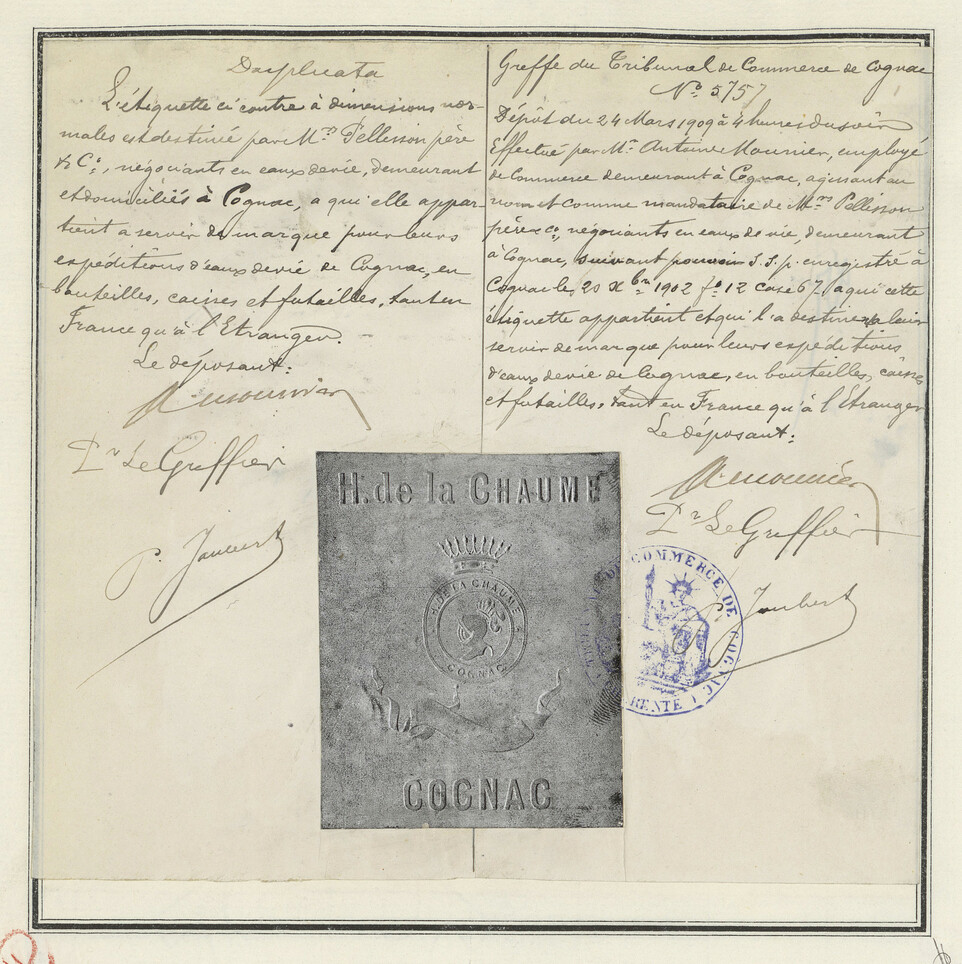 Duplicata
L'étiquette ci contre à dimensions nor-
males est destiné par M.rs Pellisson père
& Co, négociants en eaux de vie, demeurant
et domiciliés à Cognac, a qui elle appar-
tient a servir de marque pour leurs
expéditions d'eaux de vie de Cognac, en
bouteilles, caisses et futailles, tant en
France qu'à l'Etranger.
Le déposant:
A. Mounier
Pr Le Greffier
P. Joubert
Greffe du Tribunal de Commerce de Cognac
No 5757
Dépôt du 24 Mars 1909 à 4 heures du soir
Effectué par Mr Antoine Mounier, employé
de Commerce demeurant à Cognac, agissant au
nom et comme mandataire de M.rs Pellisson
père & Co, négociants en eaux de vie, demeurant
à Cognac, suivant pouvoir S.S.p. enregistré à
Cognac le 20 Xbre 1902 fo 12 case 67, a qui cette
étiquette appartient et qui l'a destinée à leur
servir de marque pour leurs expéditions
d'eaux de vie de Cognac, en bouteilles, caisses
et futailles, tant en France qu'à l'Etranger
Le déposant:
A. Mounier
Pr Le Greffier
P. Joubert
H. de la CHAUME
H. DE LA CHAUME
COGNAC
COGNAC
COMMERCE DE COGNAC